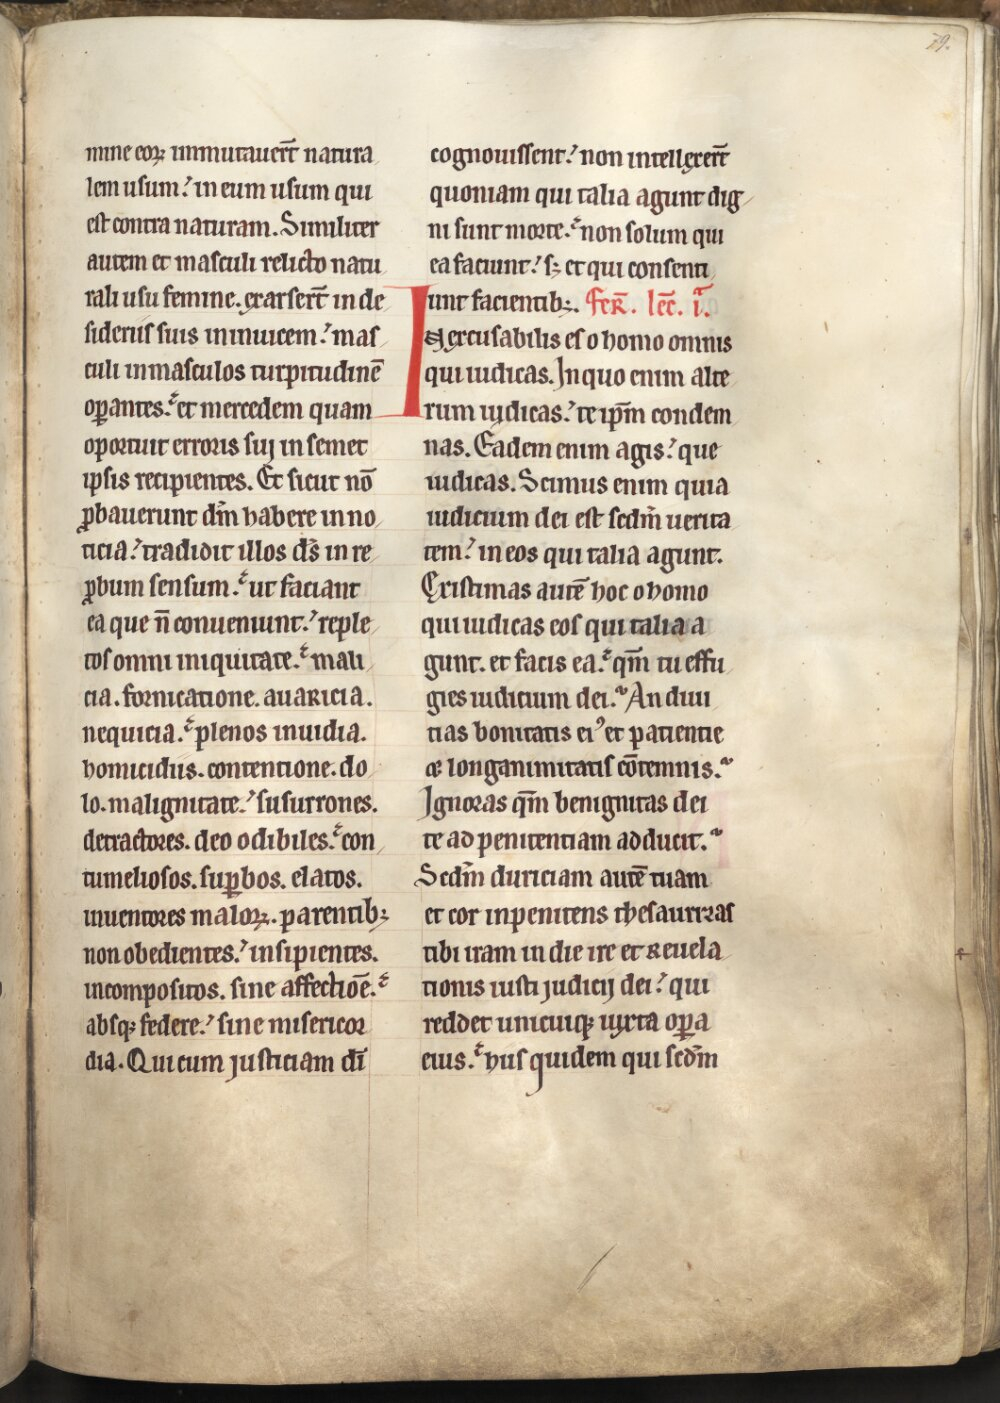 79.
mine eoꝝ immutauer̄t natura
lem usum: in eum usum qui
est contra naturam. Similiter
autem et masculi relicto natu
rali usu femine. exarser̄t in de
sideriis suis inuicem: mas
culi in masculos turpitudinē
oꝑantes: et mercedem quam
oportuit erroris sui in semet
ipsis recipientes. Et sicut nō
ꝓbauerunt dm̄ habere in no
ticia: tradidit illos ds̄ in re
ꝓbum sensum: ut faciant
ea que n̄ conueniunt: reple
tos omni iniquitate: mali
cia. fornicatione. auaricia.
nequicia: plenos inuidia.
homicidiis. contentione. do
lo. malignitate: susurrones.
detractores. deo odibiles: con
tumeliosos. suꝑbos. elatos.
inuentores maloꝝ. parentibꝫ
non obedientes: insipientes.
incompositos. sine affectiōe:
absqꝫ federe: sine misericor
dia. Qui cum justiciam dī
cognouissent: non intellexer̄t
quoniam qui talia agunt dig
ni sunt morte: non solum qui
ea faciunt: sꝫ et qui consenti
unt facientibꝫ. fer̄. lec̄. i.
Inexcusabilis es o homo omnis
qui iudicas. In quo enim alte
rum iudicas: te ip̄m condem
nas. Eadem enim agis: que
iudicas. Scimus enim quia
iudicium dei est scdm̄ uerita
tem: in eos qui talia agunt.
Existimas autē hoc o homo
qui iudicas eos qui talia a
gunt. et facis ea: qm̄ tu effu
gies iudicium dei? An diui
tias bonitatis eiꝰ et patientie
et longanimitatis cōtemnis?
Ignoras qm̄ benignitas dei
te ad penitentiam adducit?
Scdm̄ duriciam autē tuam
et cor inpenitens thesaurizas
tibi iram in die ire et reuela
tionis iusti judicij dei: qui
reddet unicuiqꝫ iuxta oꝑa
eius: hiis quidem qui scdm̄